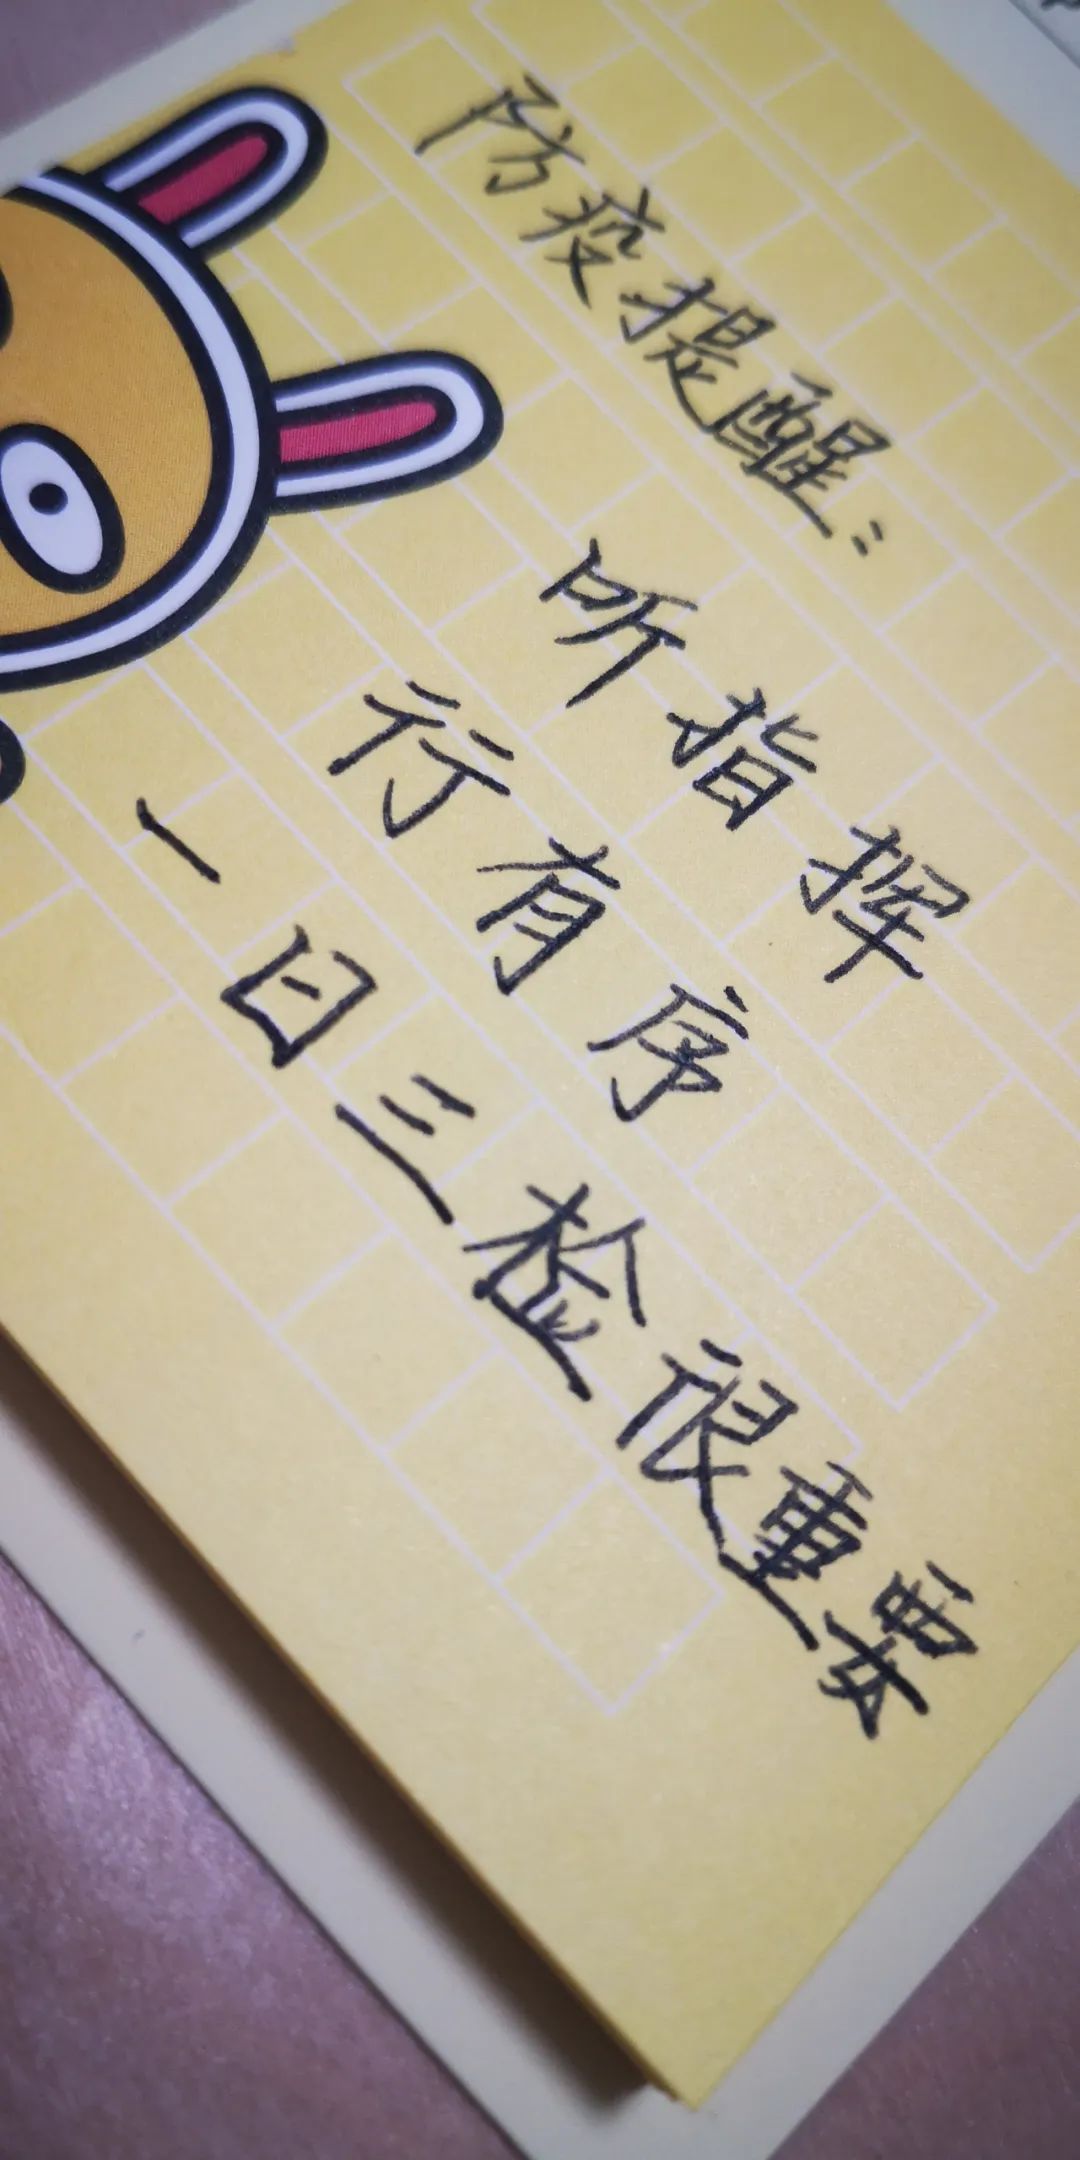 防疫提醒：
听指挥
行有序
一日三检很重要